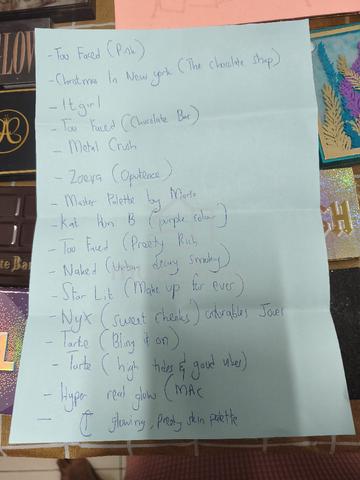 LOW
- Too Faced (Pink)
- Christmas In New york (The chocolate shop)
- It girl
- Too Faced (Chocolate Bar)
- Metal Crush
- Zoeva (Opulence)
- Master Palette by Mario
- Kat Von B (purple colour)
- Too Faced (Preety Rich
- Naked (Urban decay smokey)
- Star Lit (Make up for ever)
- Nyx (sweet cheeks)
- Tarte (Bling it on)
- Tarte (high tides & good vibes)
- Hyper real glow (MAC
glowing, preety skin palette
te Bar
CH